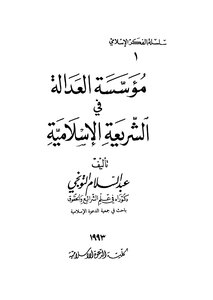 سلسلة الفكر الإسلامي
١
مؤسسة العدالة
في
الشريعة الإسلامية
تأليف
عبد السلام التونجي
دكتوراه في علم الشرائع والحقوق
باحث في جمعية الدعوة الإسلامية
١٩٩٣
كلية الدعوة الإسلامية